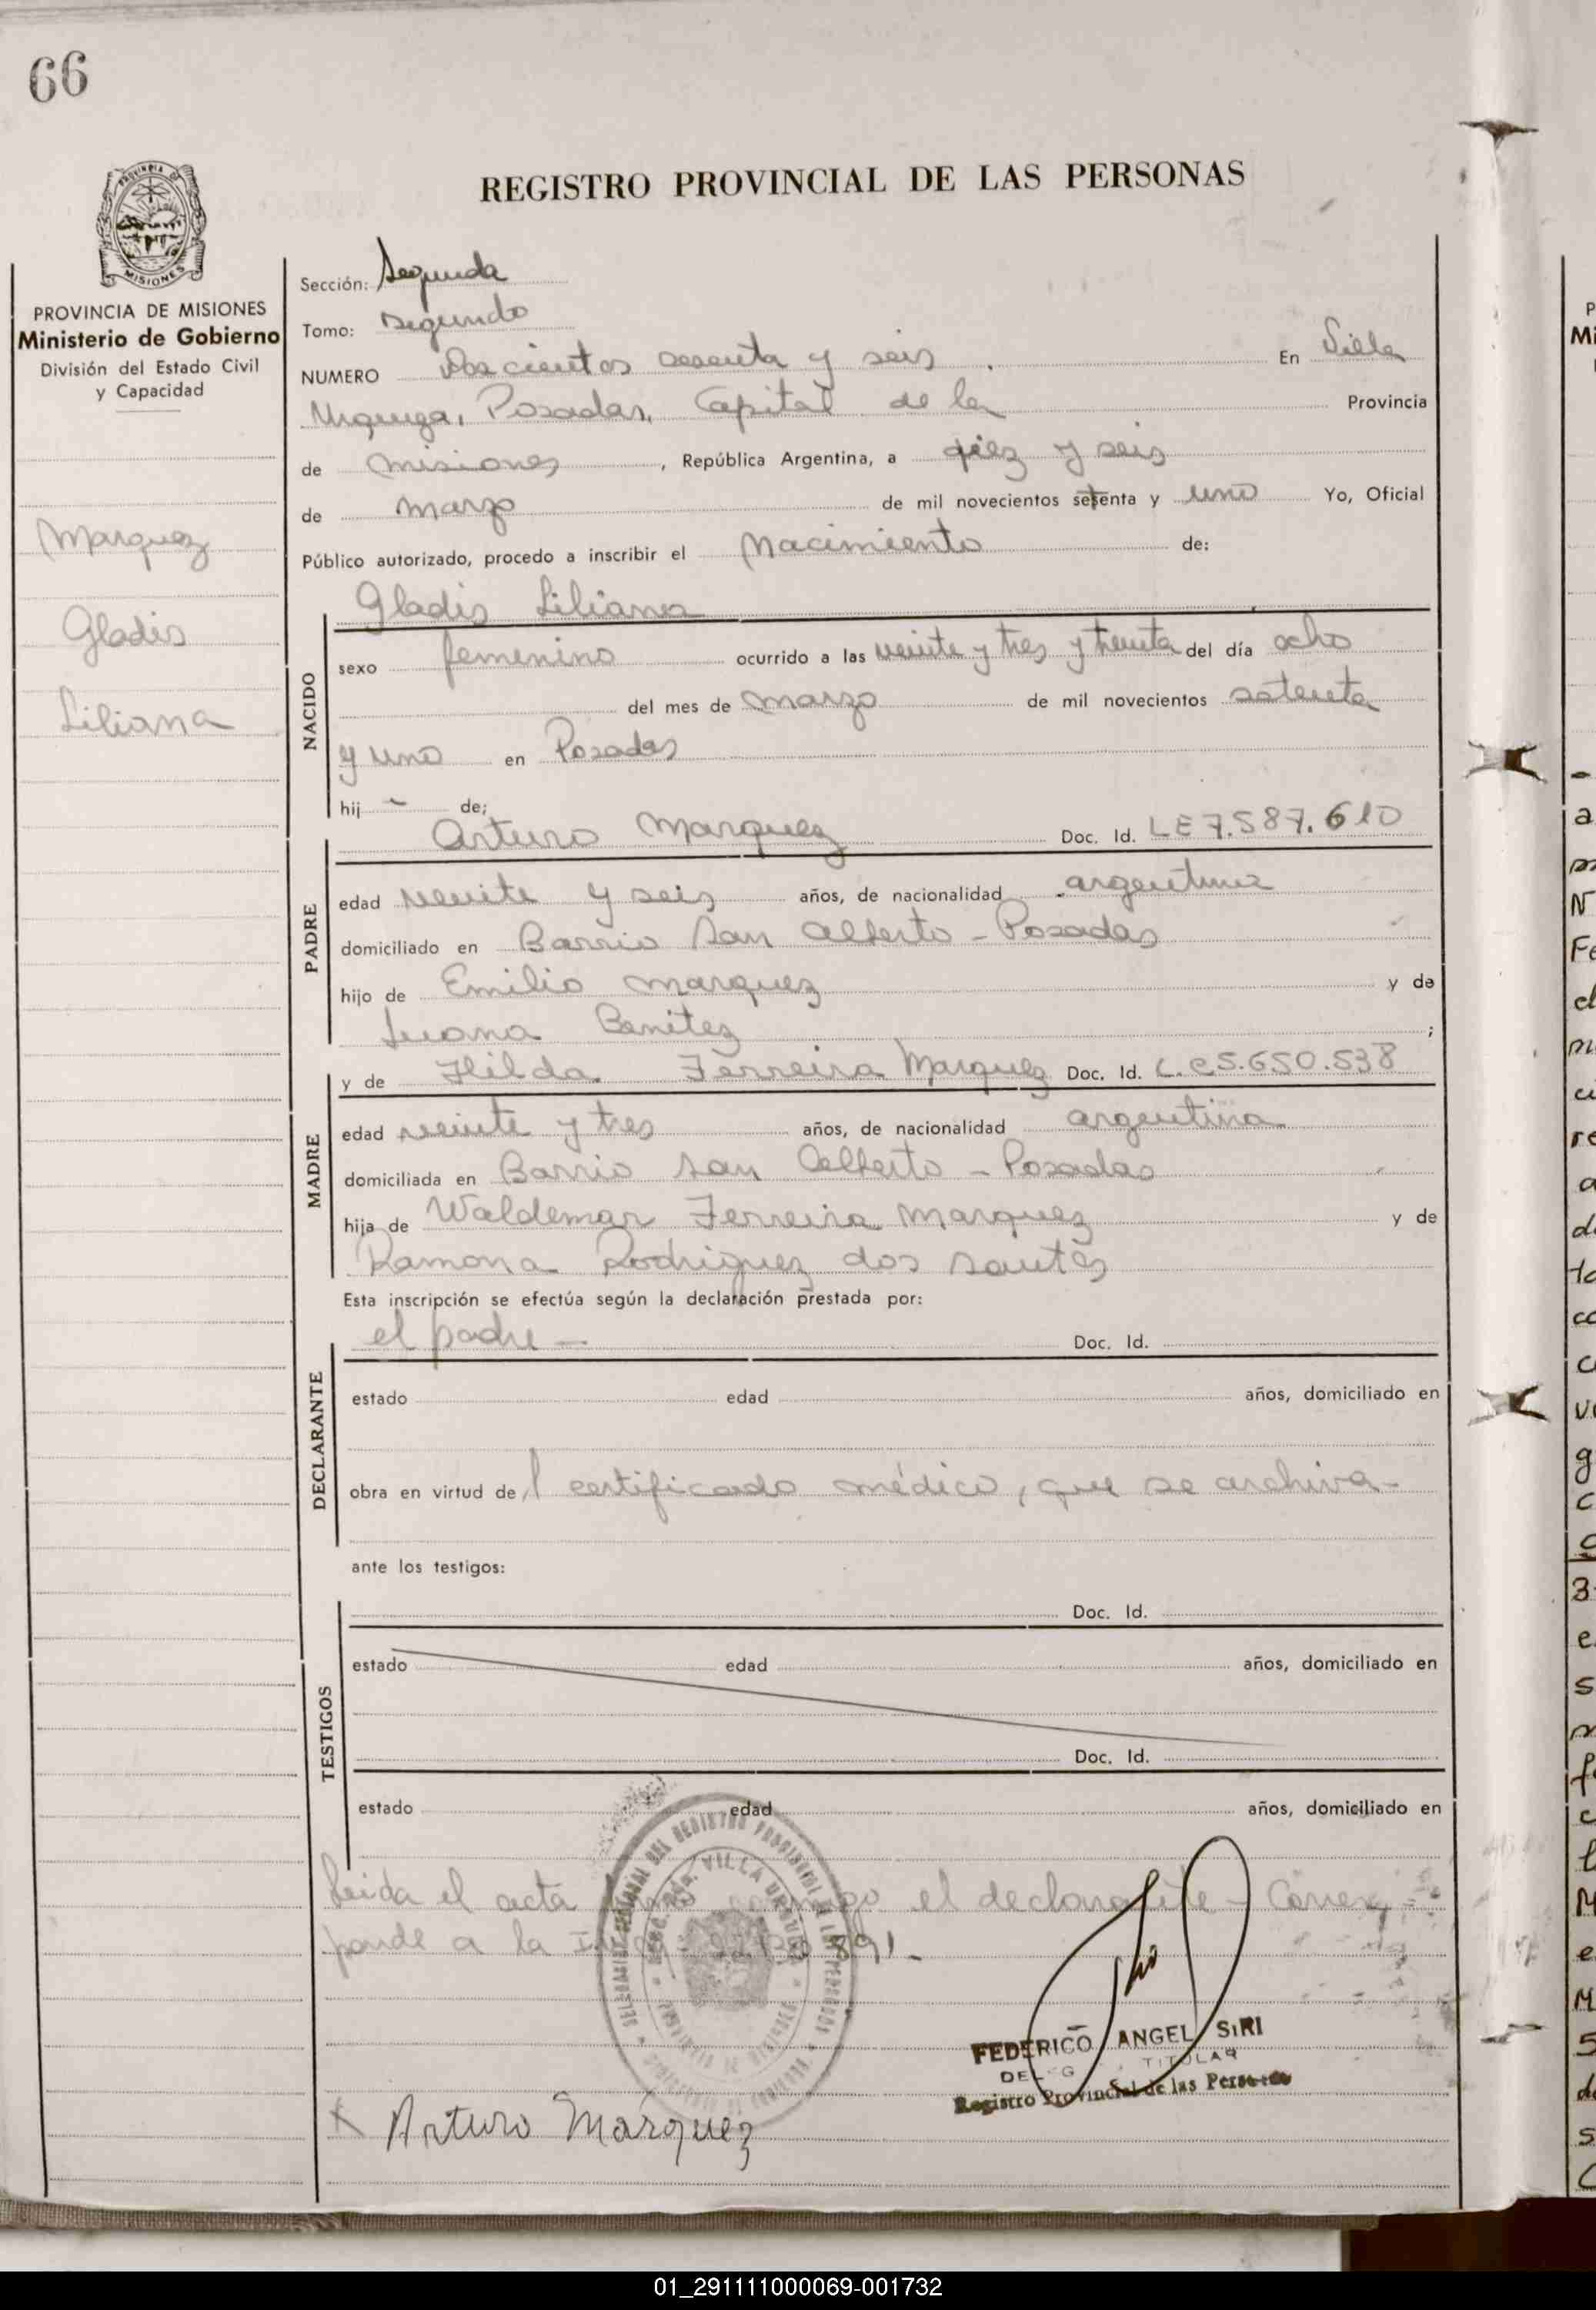 66
REGISTRO PROVINCIAL DE LAS PERSONAS
PROVINCIA DE MISIONES
Ministerio de Gobierno
División del Estado Civil
y Capacidad
Marquez
Gladis
Liliana
Sección: Segunda
Tomo: Segundo
NUMERO Doscientos sesenta y seis. En Villa
Urquiza, Posadas, Capital de la Provincia
de Misiones, República Argentina, a diez y seis
de marzo de mil novecientos setenta y uno Yo, Oficial
Público autorizado, procedo a inscribir el Nacimiento de:
Gladis Liliana
NACIDO
sexo femenino ocurrido a las veinte y tres y treinta del día ocho
del mes de marzo de mil novecientos setenta
y uno en Posadas
hij de;
Arturo Marquez Doc. Id. LE 7.587.610
PADRE
edad veinte y seis años, de nacionalidad argentina
domiciliado en Barrio San Alberto - Posadas
hijo de Emilio Marquez y de
Juana Benitez ;
y de Hilda Ferreira Marquez Doc. Id. L.C 5.650.538
MADRE
edad veinte y tres años, de nacionalidad argentina
domiciliada en Barrio San Alberto - Posadas
hija de Waldemar Ferreira Marquez y de
Ramona Rodriguez dos Santos
Esta inscripción se efectúa según la declaración prestada por:
el padre - Doc. Id.
DECLARANTE
estado edad años, domiciliado en
obra en virtud de l certificado médico, que se archiva -
ante los testigos:
Doc. Id.
TESTIGOS
estado edad años, domiciliado en
Doc. Id.
estado edad años, domiciliado en
Leida el acta el declarante - Corres
ponde a la 891.
VILLA URQUIZA
FEDERICO ANGEL SIRI
TITULAR
Registro Provincial de las Personas
Arturo Marquez
01_291111000069-001732